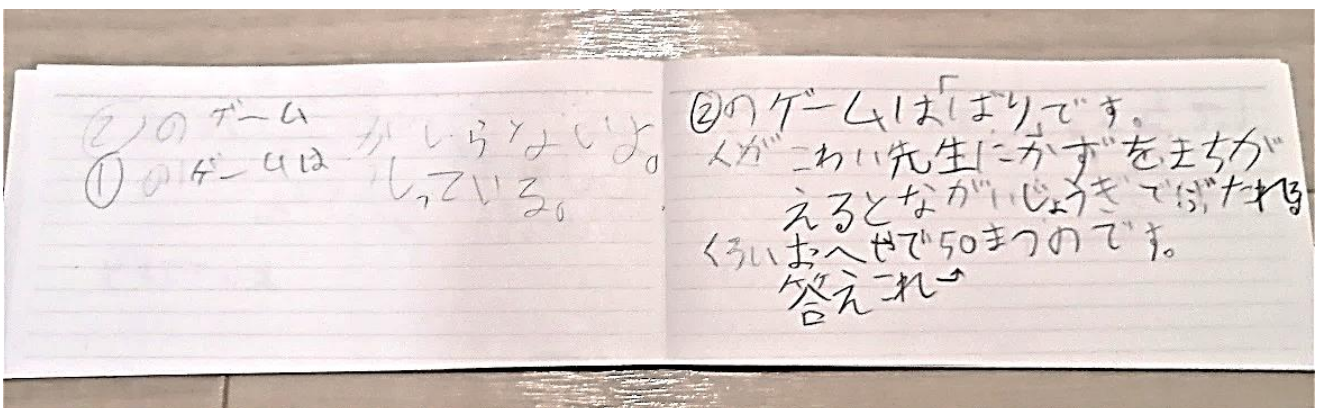 ②のゲームがしらないよ。
①のゲームはしっている。
②のゲームは「ばり」です。
人がこわい先生にかずをまちが
えるとながいじょうぎでぶたれる
くろいおへやで50まつのです。
答えこれ→